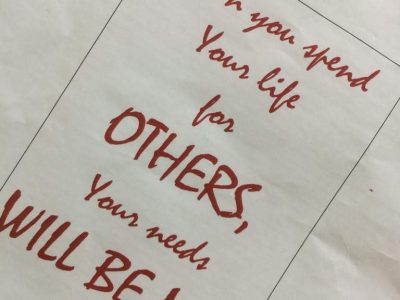 you spend
Your life
for
OTHERS,
Your needs
WILL BE